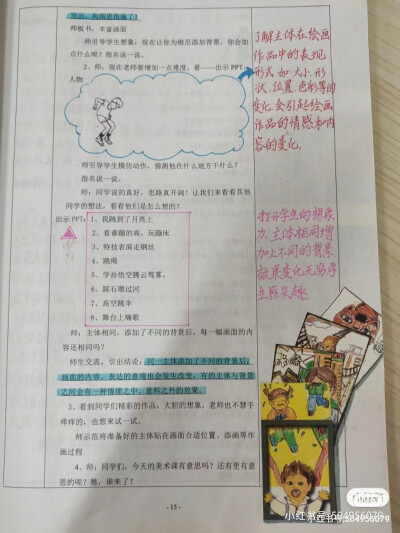 突出，构图更饱满了？
师板书：丰富画面
师引导学生想象，现在让你为他添加背景，你会加
点什么呢？指名说一说。
2、师：现在老师要增加一点难度，看——出示 PPT：
人物
师引导学生模仿动作，猜测他在什么地方干什么？
指名说一说。
师：同学说的真好，思路真开阔！让我们来看看其他
同学的想法，看看他们是怎么想的？
出示 PPT：
1、我跳到了月亮上
2、看谁蹦的高，玩蹦床
3、特技表演走钢丝
4、跳绳
5、学孙悟空腾云驾雾。
6、踩石墩过河
7、高空跳伞
8、舞台上嗨歌
师：主体相同，添加了不同的背景后，每一幅画面的内
容还相同吗？
师生交流，引出结论：同一主体添加了不同的背景后，
画面的内容、表达的意境也会发生改变。有的主体与背景
之间会有一种情理之中、意料之外的效果。
3、看到同学们精彩的作品，大胆的想象，老师也不禁手
痒痒的，也想来试一试。
师示范将准备好的主体贴在画面合适位置、添画等作
画过程
4、师：同学们，今天的美术课有意思吗？还有更有意
思的呢？瞧，谁来了？
- 15 -
了解主体在绘画
作品中的表现
形式如大小、形
状、位置、色彩等的
变化会引起绘画
作品的情感和内
容的变化.
打开学生的想象
力、主体相同增
加上不同的背景
效果变化无穷学
生感兴趣
小红书
小红书号:594956079